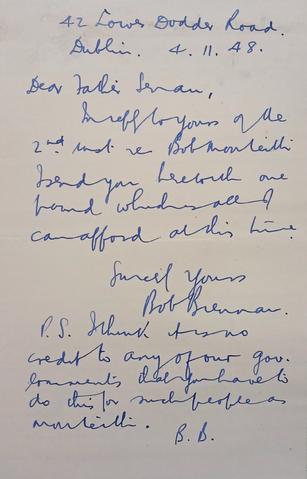 42 Lower Dodder Road.
Dublin. 4.11.48.
Dear Father Senan,
In reply to yours of the
2nd inst re Bob Monteith
I send you herewith one
pound which is all I
can afford at this time.
Yours
Bob Brennan.
P.S. I think it is no
credit to any of our gov-
ernments that you have to
do this for such people as
Monteith.
B.B.